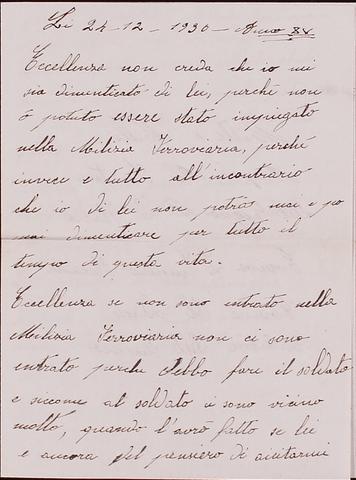 Li 24-12-1930- Anno XV
Eccellenza non creda che io mi
sia dimenticato di lei, perchè non
ò potuto essere stato impiegato
nella Milizia Ferroviaria, perché
invece e tutto all'incontrario
che io di lei non potrò mai e po
mai dimenticare per tutto il
tempo di questa vita.
Eccellenza se non sono entrato nella
Milizia Ferroviaria non ci sono
entrato perche debbo fare il soldato
e siccome al soldato ci sono vicino
molto, quando l'avrò fatto se lei
e ancora del pensiero di aiutarmi